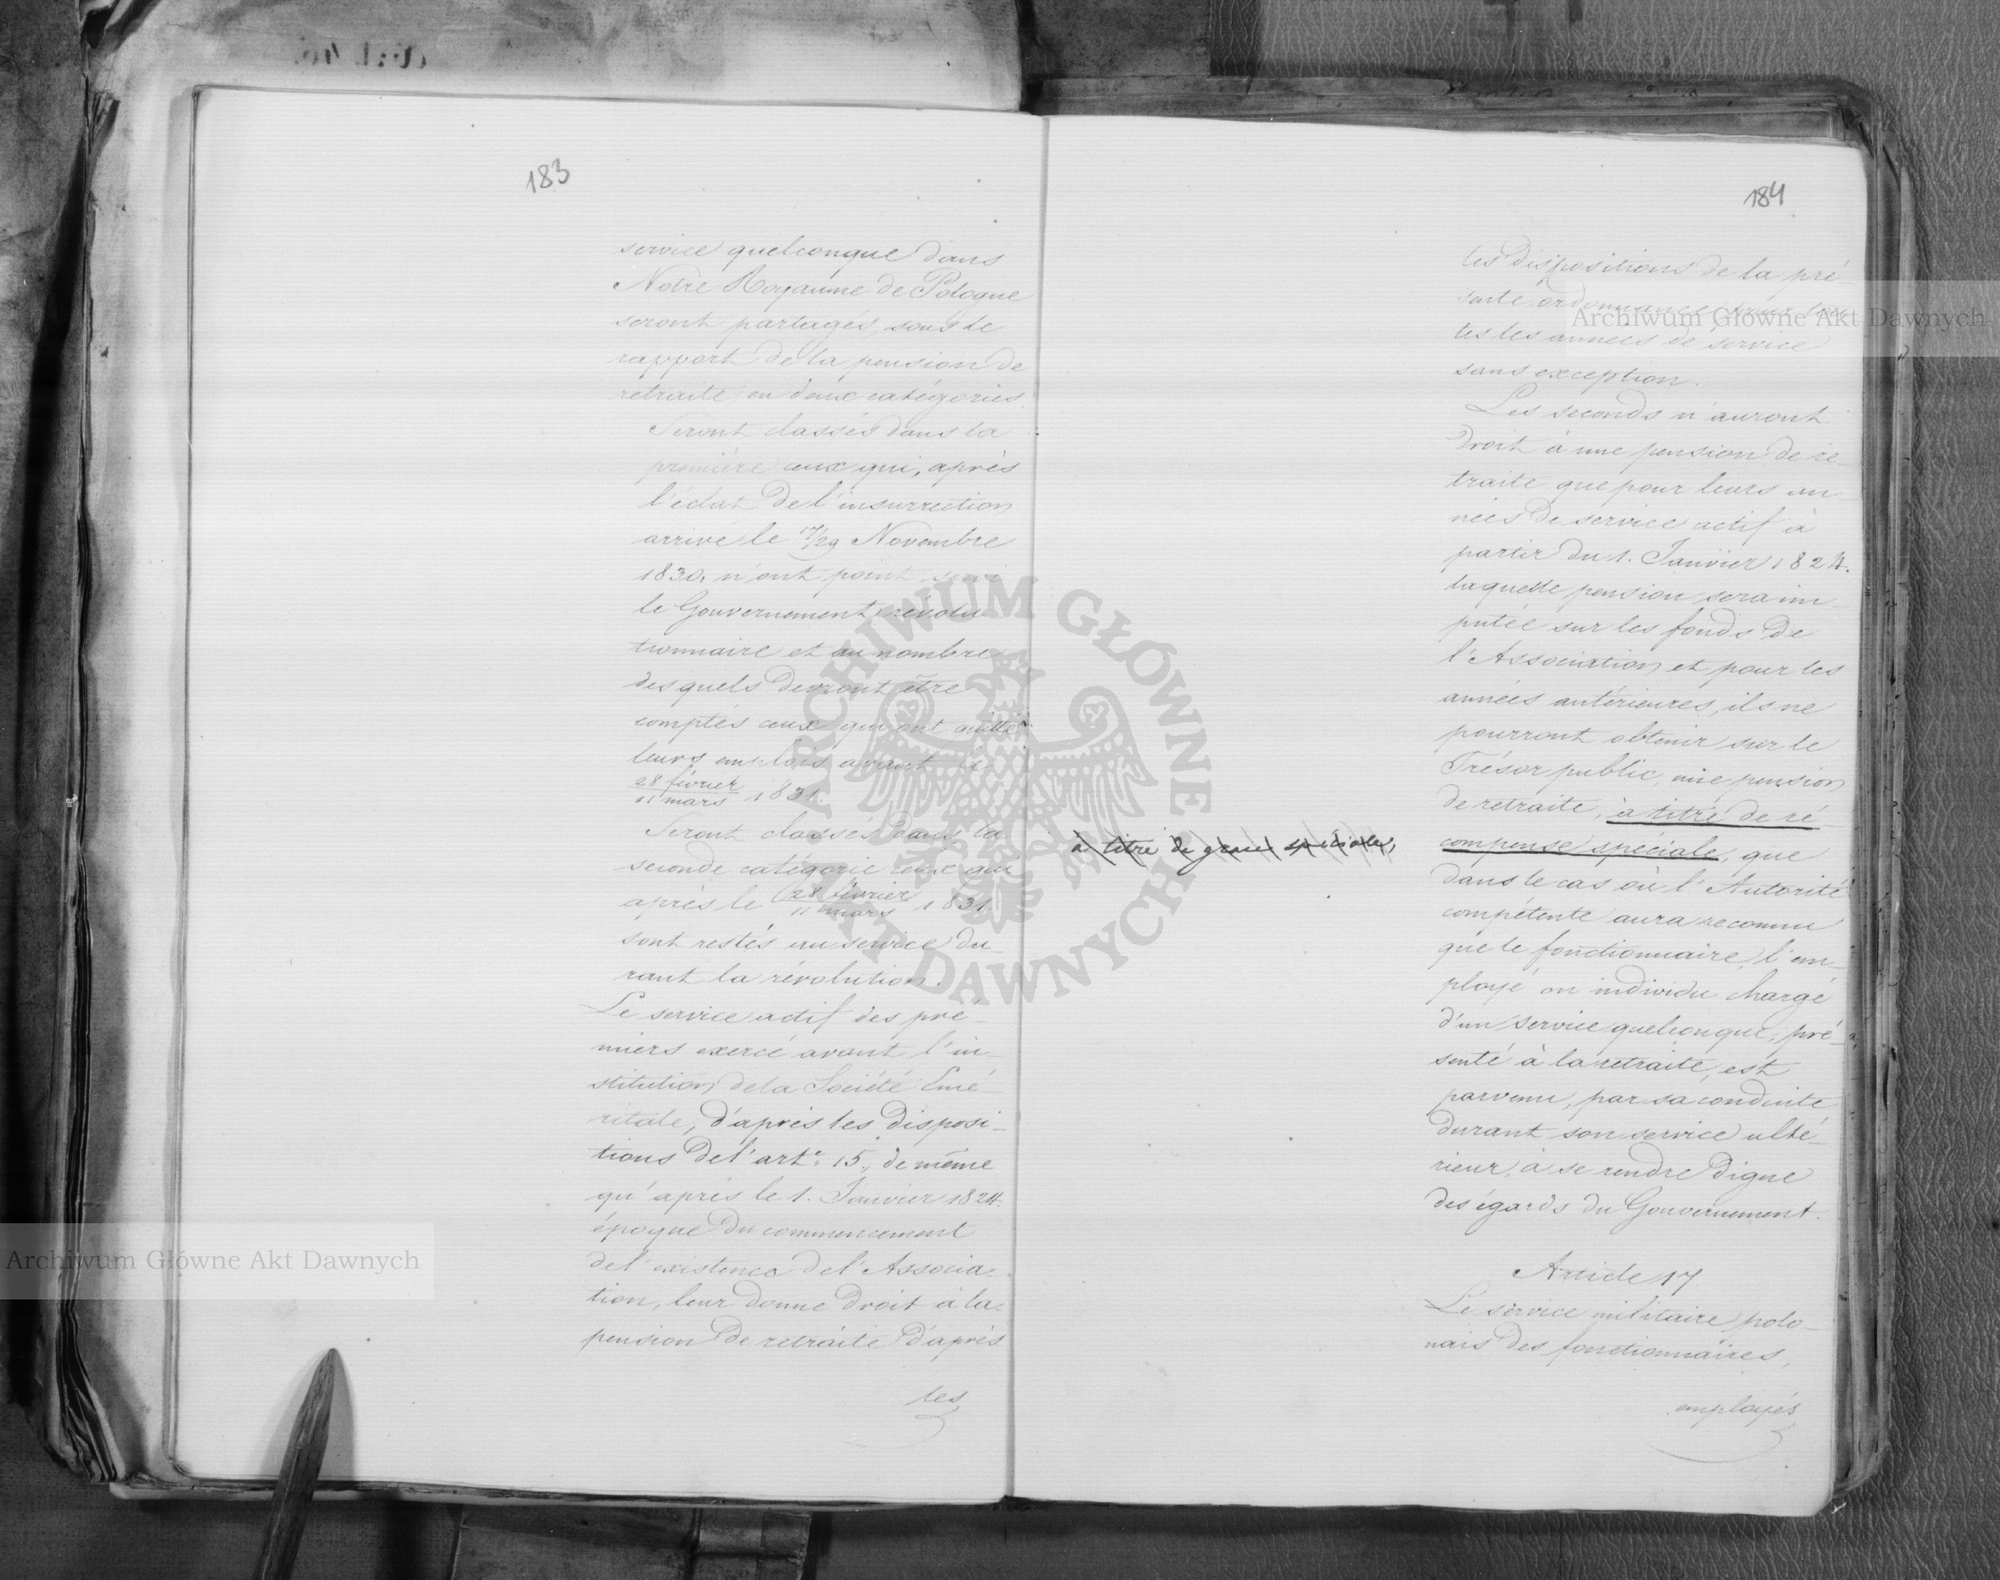 183
service quelconque dans
Notre Royaume de Pologne
seront partagés, sous le
rapport de la pension de
retraite, en deux catégories.
Seront classés dans la
première ceux qui, après
l'éclat de l'insurrection
arrivé le 17/29 Novembre
1830, n'ont point servi
le Gouvernement révolu
tionnaire et au nombre
desquels devront être
comptés ceux qui ont quitté
leurs emplois avant le
28 février
11 mars 1831.
Seront classés dans la
seconde catégorie ceux qui
après le 28 février
11 mars 1831.
sont restés au service du-
rant la révolution.
Le service actif des pré-
miers exercé avant l'in-
stitution de la Société Emé-
ritale, d'après les disposi-
tions de l'art. 15, de même
qu'après le 1. Janvier 1824.
époque du commencement
de l'existence de l'Associa-
tion, leur donne droit à la
pension de retraite d'après
les
184
les dispositions de la pré-
sente ordonnance, pour tou-
tes les années de service
sans exception.
Les seconds n'auront
droit à une pension de re-
traite que pour leurs an-
nées de service actif à
partir du 1. Janvier 1824.
laquelle pension sera im-
putée sur les fonds de
l'Association et pour les
années antérieures, ils ne
pourront obtenir sur le
Trésor public, une pension
de retraite, à titre de ré-
compense spéciale, que
dans le cas où l'Autorité
compétente aura reconnu
que le fonctionnaire, l'em-
ployé ou individu chargé
d'un service quelconque, pré-
senté à la retraite, est
parvenu, par sa conduite
durant son service ulté-
rieur, à se rendre digne
des égards du Gouvernement.
Article 17
Le service militaire polo-
nais des fonctionnaires,
employés
à titre de grace spéciale,
Archiwum Główne Akt Dawnych
Archiwum Główne Akt Dawnych
ARCHIWUM GŁÓWNE AKT DAWNYCH